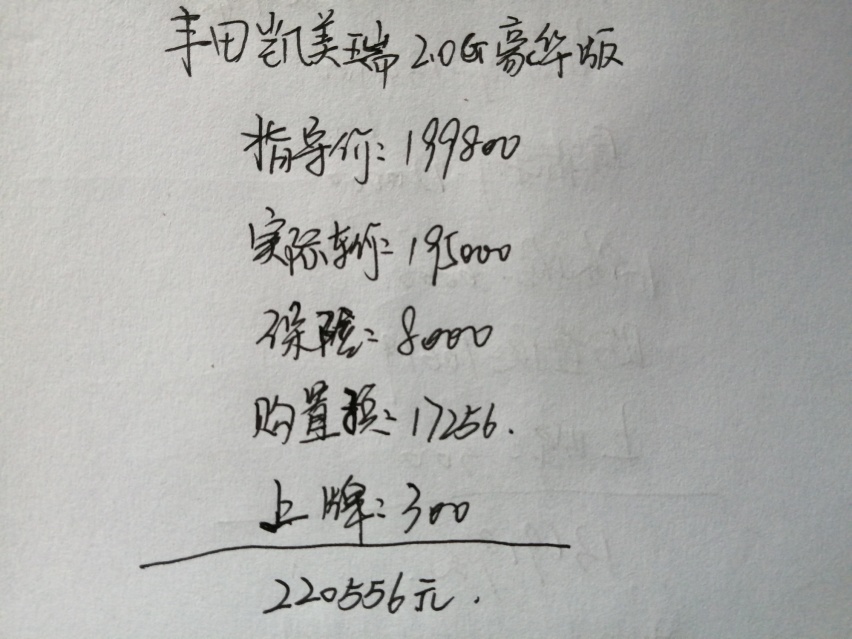 丰田凯美瑞2.0G豪华版
指导价:199800
实际车价:195000
保险:8000
购置税:17256.
上牌:300
220556元.